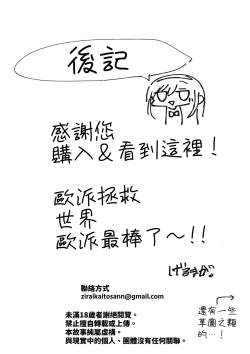 後記
感謝您
購入&看到這裡!
歐派拯救
世界
歐派最棒了~!!
還有一些
草圖之類
的…!
聯絡方式
ziraikaitosann@gmail.com
未滿18歲者謝絕閱覽。
禁止擅自轉載或上傳。
本故事純屬虛構。
與現實中的個人、團體沒有任何關聯。